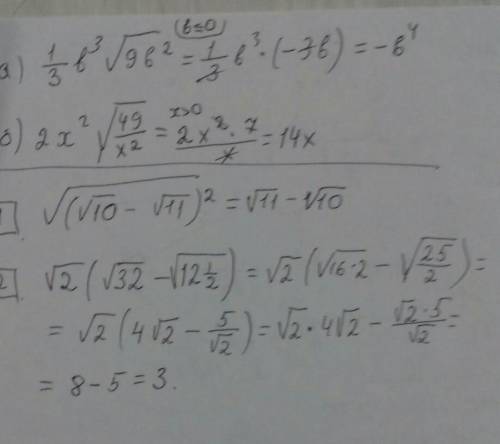 (b≤0)
а) 1/3 b³ √9b² = 1/3 b³ · (-3b) = -b⁴
x>0
б) 2x² √49/x² = 2x² · 7/x = 14x
1. √(√10 - √11)² = √11 - √10
2. √2 (√32 - √12 1/2) = √2 (√16·2 - √25/2) =
= √2 (4√2 - 5/√2) = √2 · 4√2 - √2 · 5/√2 =
= 8 - 5 = 3.